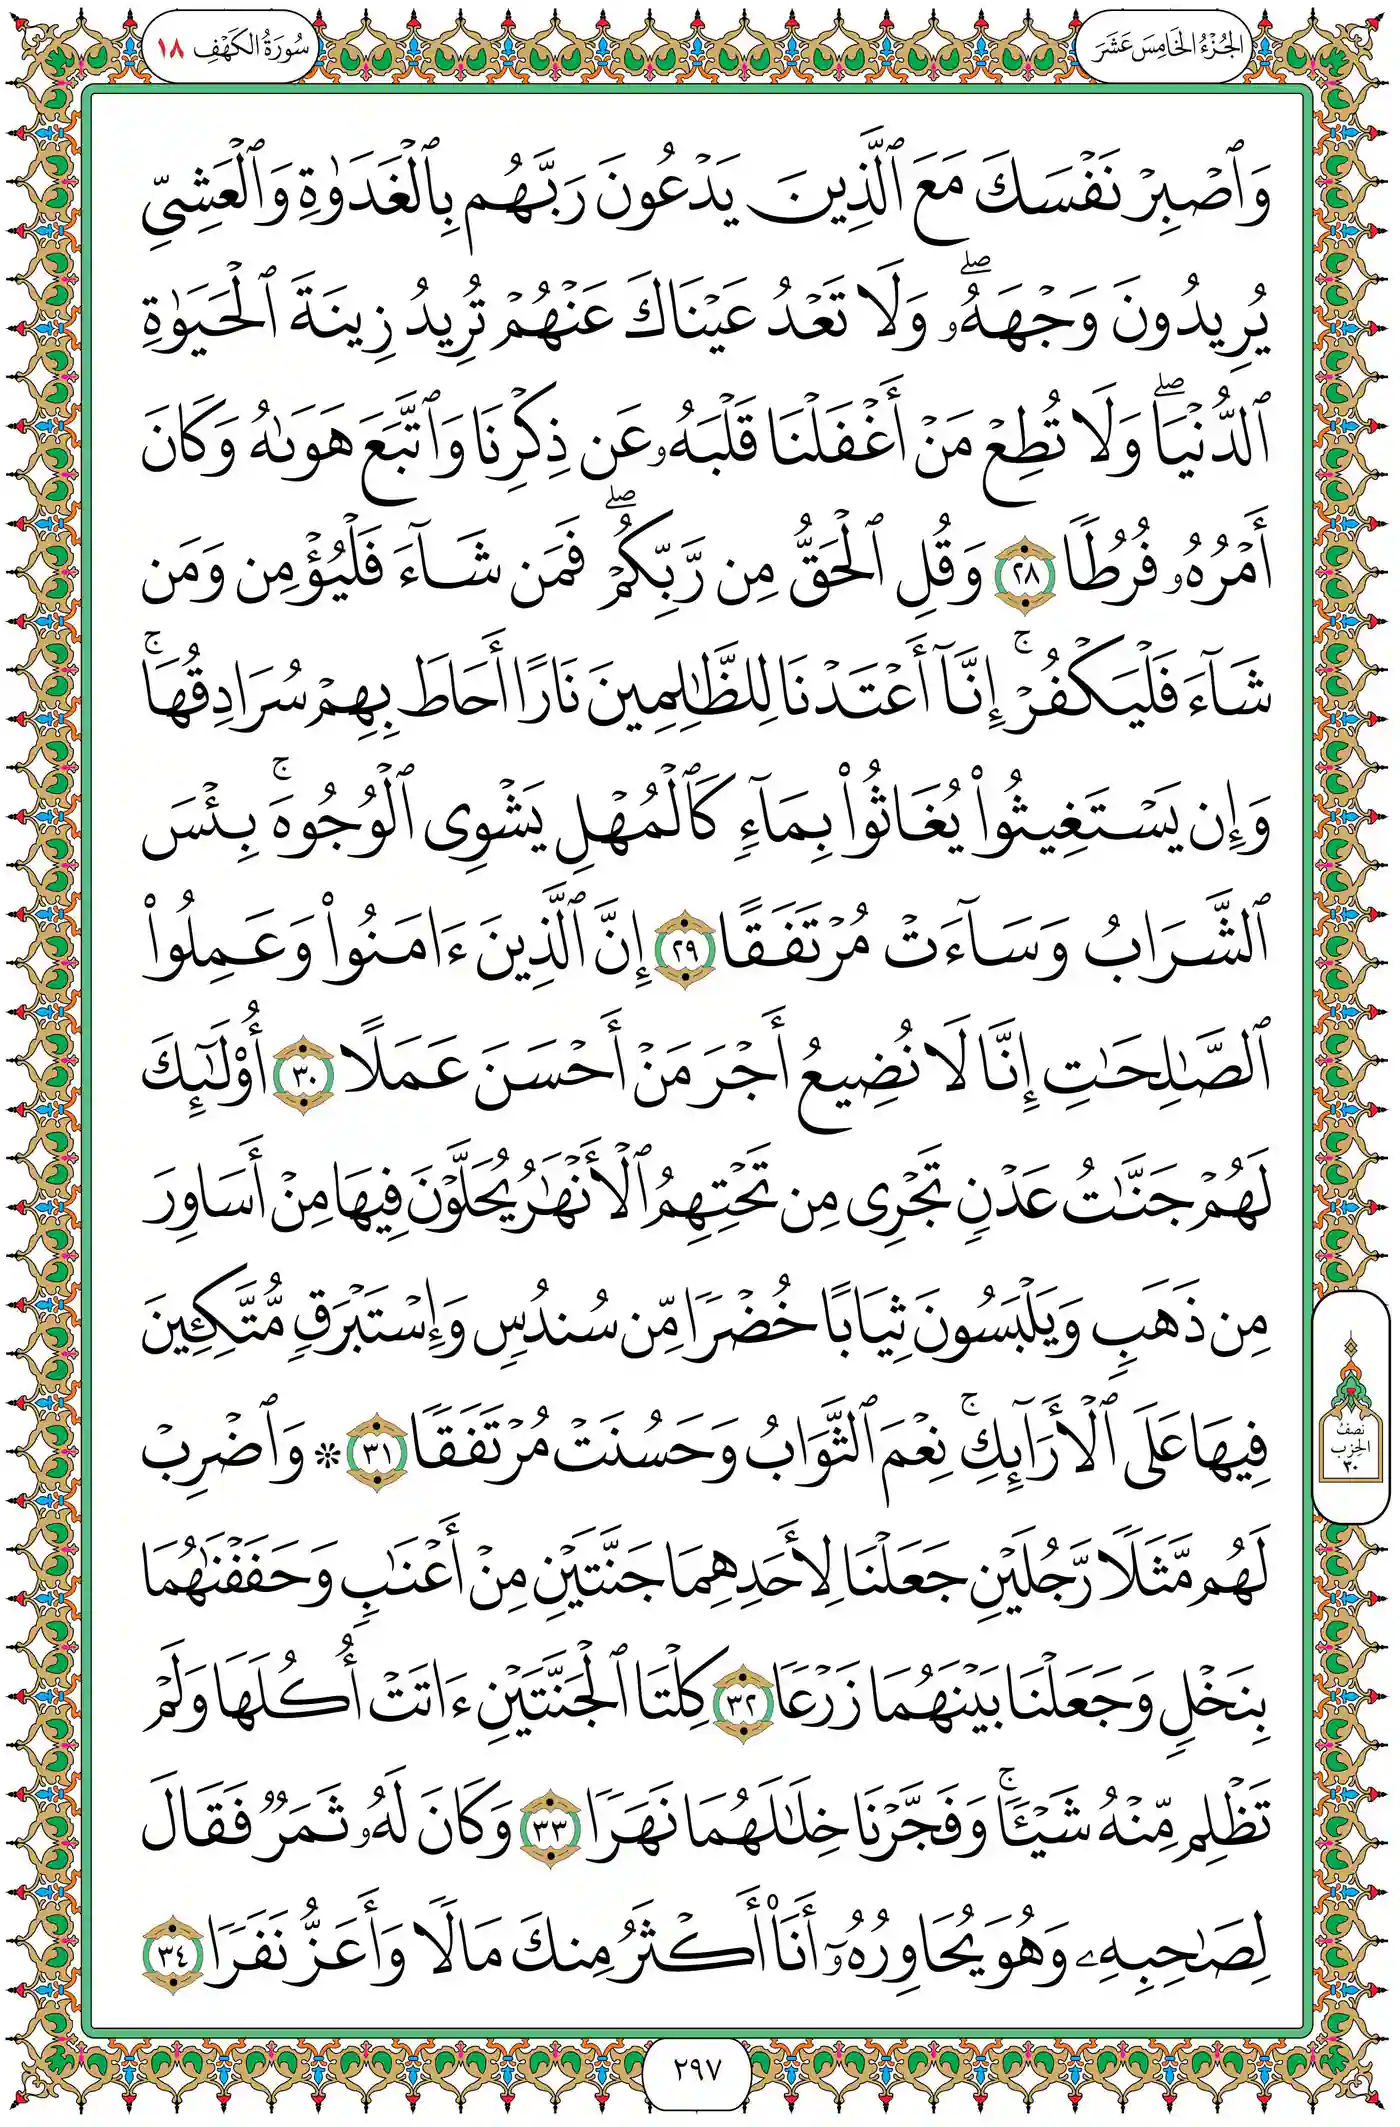 الجُزْءُ الخَامِسَ عَشَرَ
سُورَةُ الكَهْفِ ١٨
وَٱصۡبِرۡ نَفۡسَكَ مَعَ ٱلَّذِينَ يَدۡعُونَ رَبَّهُم بِٱلۡغَدَوٰةِ وَٱلۡعَشِيِّ
يُرِيدُونَ وَجۡهَهُۥۖ وَلَا تَعۡدُ عَيۡنَاكَ عَنۡهُمۡ تُرِيدُ زِينَةَ ٱلۡحَيَوٰةِ
ٱلدُّنۡيَاۖ وَلَا تُطِعۡ مَنۡ أَغۡفَلۡنَا قَلۡبَهُۥ عَن ذِكۡرِنَا وَٱتَّبَعَ هَوَىٰهُ وَكَانَ
أَمۡرُهُۥ فُرُطٗا ٢٨ وَقُلِ ٱلۡحَقُّ مِن رَّبِّكُمۡۖ فَمَن شَآءَ فَلۡيُؤۡمِن وَمَن
شَآءَ فَلۡيَكۡفُرۡۚ إِنَّآ أَعۡتَدۡنَا لِلظَّٰلِمِينَ نَارًا أَحَاطَ بِهِمۡ سُرَادِقُهَاۚ
وَإِن يَسۡتَغِيثُواْ يُغَاثُواْ بِمَآءٖ كَٱلۡمُهۡلِ يَشۡوِي ٱلۡوُجُوهَۚ بِئۡسَ
ٱلشَّرَابُ وَسَآءَتۡ مُرۡتَفَقًا ٢٩ إِنَّ ٱلَّذِينَ ءَامَنُواْ وَعَمِلُواْ
ٱلصَّٰلِحَٰتِ إِنَّا لَا نُضِيعُ أَجۡرَ مَنۡ أَحۡسَنَ عَمَلًا ٣٠ أُوْلَٰٓئِكَ
لَهُمۡ جَنَّٰتُ عَدۡنٖ تَجۡرِي مِن تَحۡتِهِمُ ٱلۡأَنۡهَٰرُ يُحَلَّوۡنَ فِيهَا مِنۡ أَسَاوِرَ
مِن ذَهَبٖ وَيَلۡبَسُونَ ثِيَابًا خُضۡرٗا مِّن سُندُسٖ وَإِسۡتَبۡرَقٖ مُّتَّكِـِٔينَ
فِيهَا عَلَى ٱلۡأَرَآئِكِۚ نِعۡمَ ٱلثَّوَابُ وَحَسُنَتۡ مُرۡتَفَقٗا ٣١ * وَٱضۡرِبۡ
لَهُم مَّثَلٗا رَّجُلَيۡنِ جَعَلۡنَا لِأَحَدِهِمَا جَنَّتَيۡنِ مِنۡ أَعۡنَٰبٖ وَحَفَفۡنَٰهُمَا
بِنَخۡلٖ وَجَعَلۡنَا بَيۡنَهُمَا زَرۡعٗا ٣٢ كِلۡتَا ٱلۡجَنَّتَيۡنِ ءَاتَتۡ أُكُلَهَا وَلَمۡ
تَظۡلِم مِّنۡهُ شَيۡـٔٗاۚ وَفَجَّرۡنَا خِلَٰلَهُمَا نَهَرٗا ٣٣ وَكَانَ لَهُۥ ثَمَرٞ فَقَالَ
لِصَٰحِبِهِۦ وَهُوَ يُحَاوِرُهُۥٓ أَنَا۠ أَكۡثَرُ مِنكَ مَالٗا وَأَعَزُّ نَفَرٗا ٣٤
نصف
الحزب
٣٠
٢٩٧